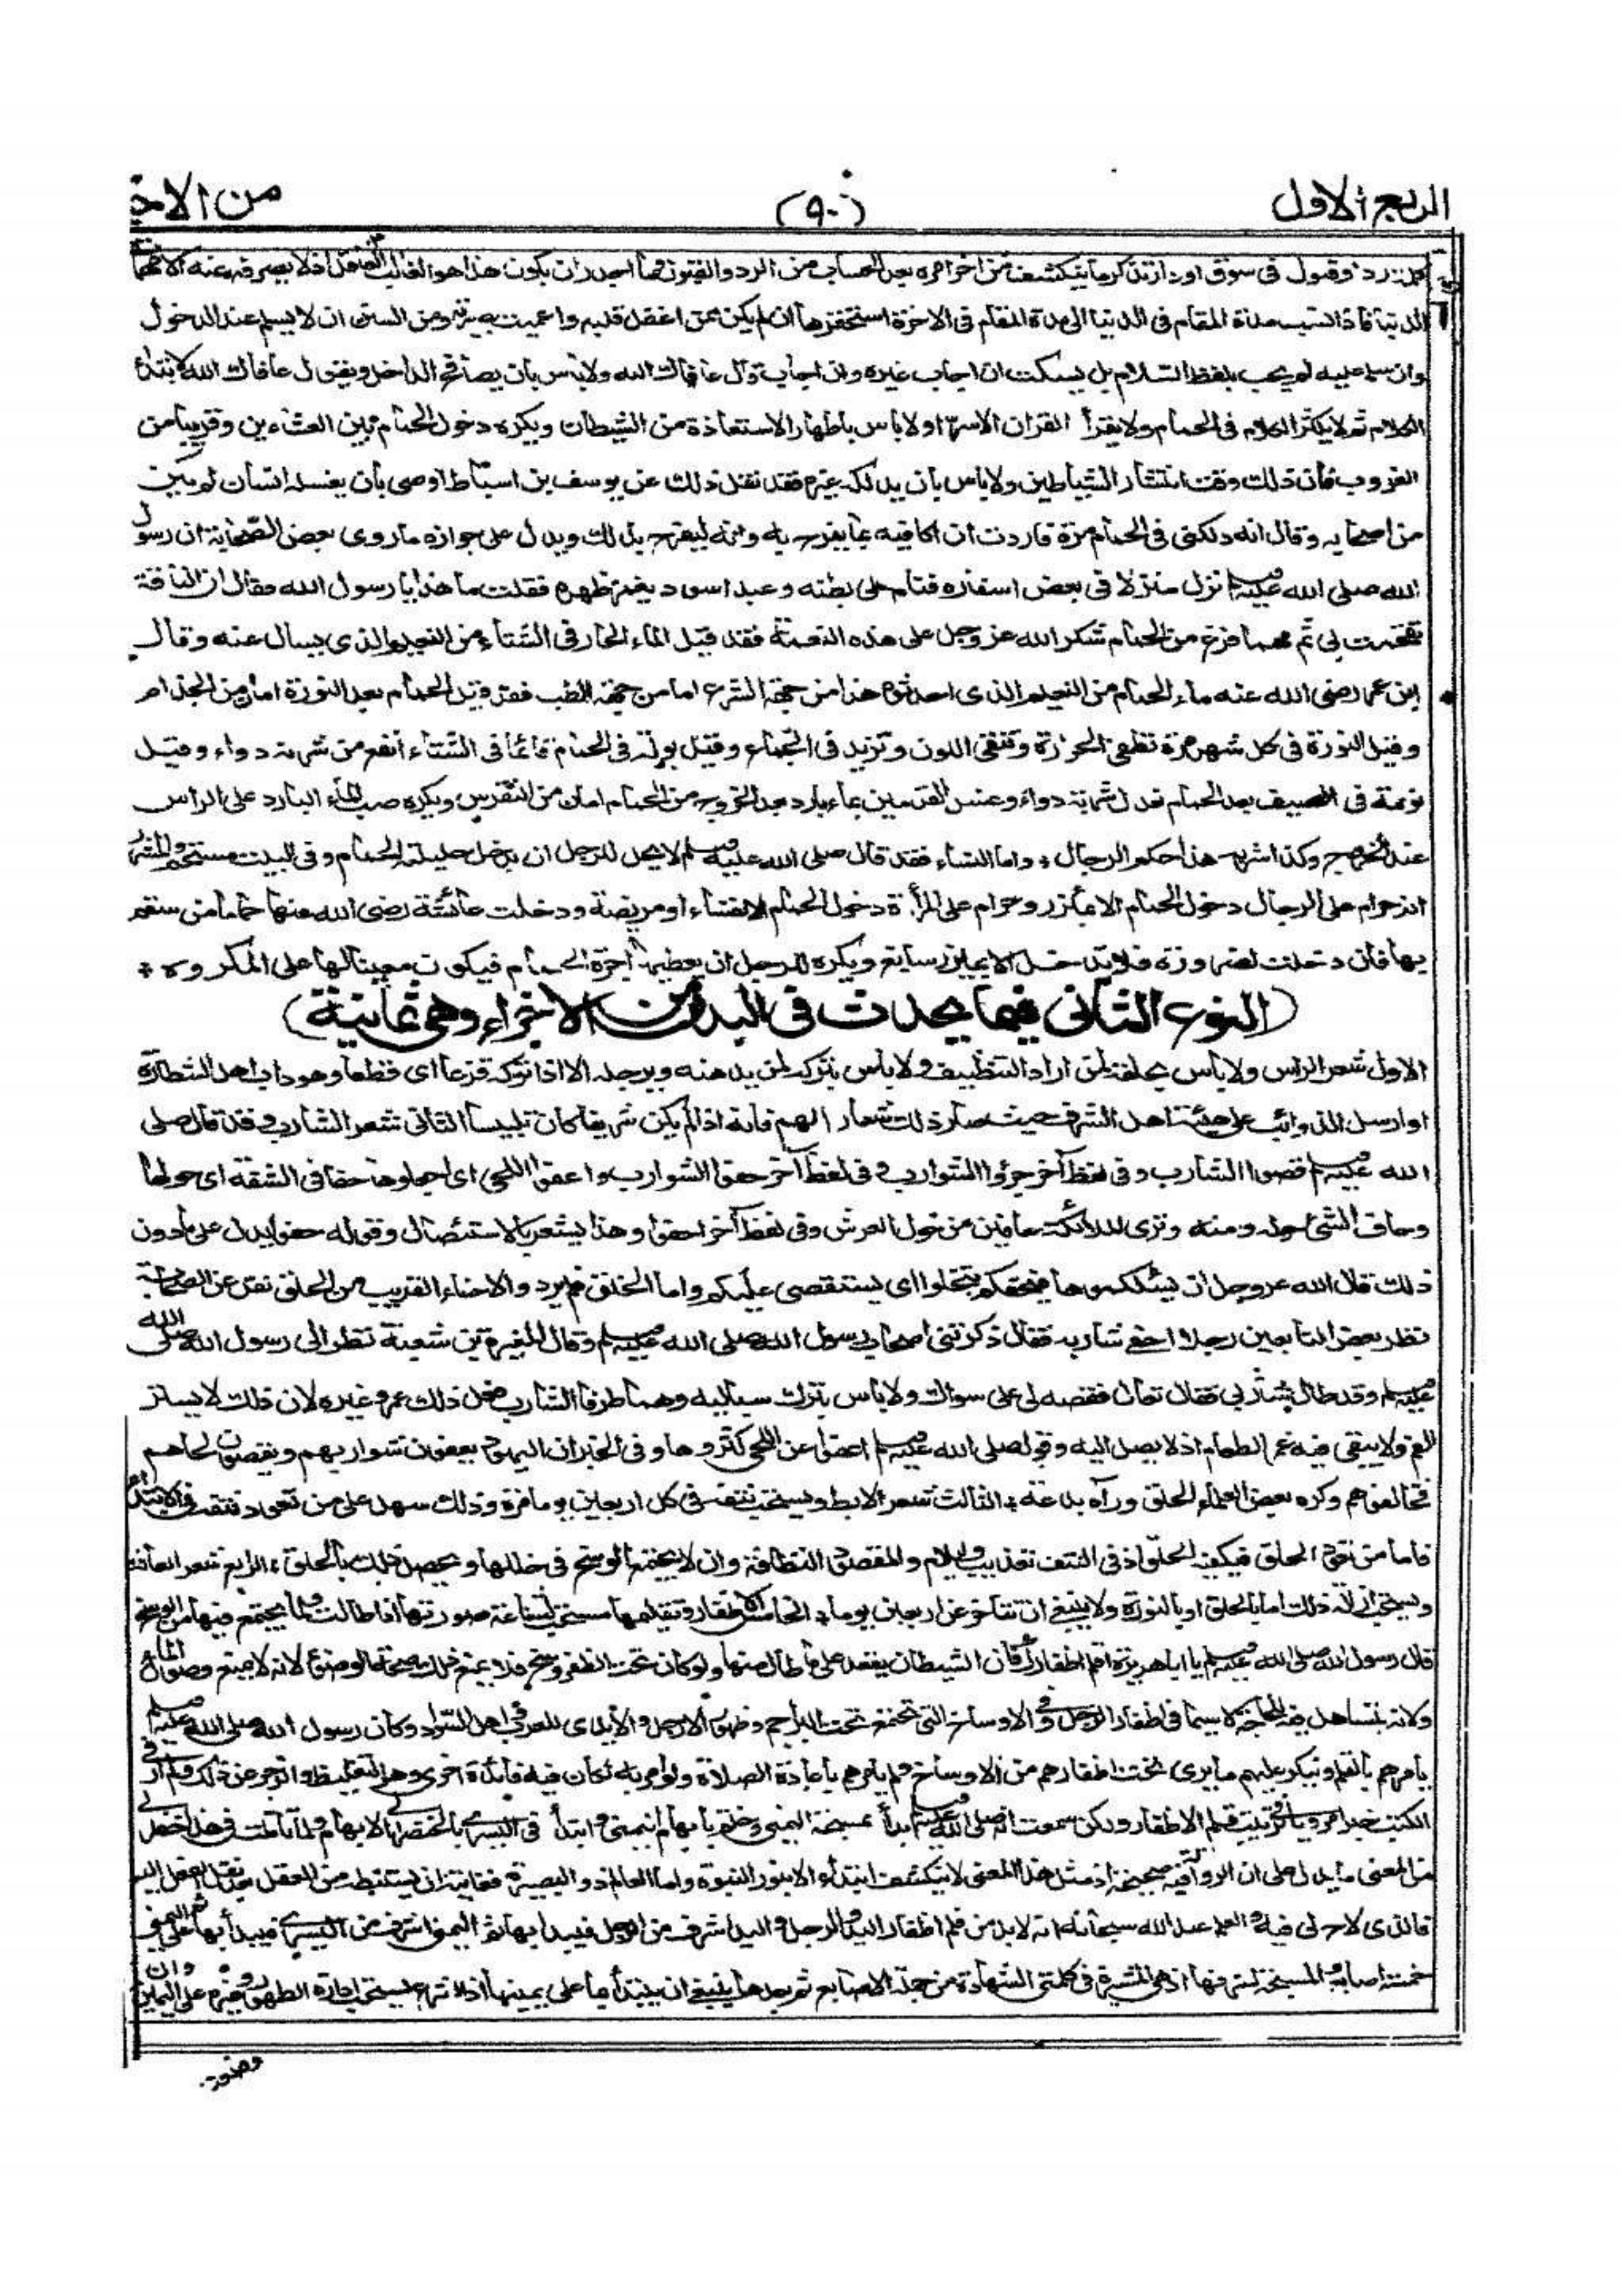 الربع الاول
(٩٠)
من الاخ
كل رد وقبول في سوق او دار تذكر ما ينكشف من اخر امره بعد الحساب من الرد والقبول فما اجدر ان يكون هذا هو الغالب على العاقل اذ لا يصرفه عنه الا مهمات
الدنيا فاذا نسب مدة المقام في الدنيا الى مدة المقام في الاخرة استحقرها ان لم يكن ممن اغفل قلبه واعميت بصيرته ومن السنن ان لا يسلم عند الدخول
وان سلم عليه لم يجب بلفظ السلام بل يسكت ان اجاب غيره وان احب قال عافاك الله ولا بأس بان يصافح الداخل ويقول عافاك الله لابتداء
الكلام ثم لا يكثر الكلام في الحمام ولا يقرأ القران الا سرا ولا باس باظهار الاستعاذة من الشيطان ويكره دخول الحمام بين العشاءين وقريبا من
الغروب فان ذلك وقت انتشار الشياطين ولا باس بان يدلكه غيره فقد نقل ذلك عن يوسف بن اسباط اوصى بان يغسله انسان لم يكن
من اصحابه وقال انه دلكني في الحمام مرة فاردت ان اكافيه بما يفرح به وانه ليفرح بذلك ويدل على جوازه ما روى بعض الصحابة ان رسول
الله صلى الله عليه وسلم نزل منزلا في بعض اسفاره فنام على بطنه وعبد اسود يغمز ظهره فقلت ما هذا يا رسول الله فقال ان الناقة
تقحمت بي ثم مهما فرغ من الحمام شكر الله عز وجل على هذه النعمة فقد قيل الماء الحار في الشتاء من النعيم الذي يسال عنه وقال
ابن عمر رضي الله عنه ماء الحمام من النعيم الذي احدثوه هذا من جهة الشرع اما من جهة الطب فقد قيل الحمام بعد النورة امان من الجذام
وقيل النورة في كل شهر مرة تطفئ الحرارة وتنقي اللون وتزيد في الجماع وقيل بولة في الحمام قائما في الشتاء أنفع من شربة دواء وقيل
نومة في الصيف بعد الحمام تعدل شربة دواء وغسل القدمين بماء بارد بعد الخروج من الحمام امان من النقرس ويكره صب الماء البارد على الراس
عند الخروج وكذا شربه هذا حكم الرجال * واما النساء فقد قال صلى الله عليه وسلم لا يحل للرجل ان يدخل حليلته الحمام وفي البيت مستحم والمشهور
انه حرام على الرجال دخول الحمام الا بمئزر وحرام على المرأة دخول الحمام الا نفساء او مريضة ودخلت عائشة رضي الله عنها حماما من سقم
بها فان دخلت لضرورة فلا تدخل الا بمئزر سابغ ويكره للرجل ان يعطيها اجرة الحمام فيكون معينا لها على المكروه *
(النوع الثاني فيما يحدث في البدن من الاجزاء وهي ثمانية)
الاول شعر الراس ولا باس بحلقه لمن اراد التنظيف ولا باس بتركه لمن يدهنه ويرجله الا اذا تركه قزعا اي قطعا وهو داب اهل الشطارة
او ارسل الذوائب على هيئة اهل الشرف حيث صار ذلك شعارا لهم فانه اذا لم يكن شريفا كان تلبيسا الثاني شعر الشارب وقد قال صلى
الله عليه وسلم قصوا الشارب وفي لفظ آخر جزوا الشوارب وفي لفظ آخر حفوا الشوارب واعفوا اللحى اي اجعلوها حفافي الشفة اي حولها
وحاف الشئ حوله ومنه وترى الملائكة حافين من حول العرش وفي لفظ آخر احفوا وهذا يشعر بالاستئصال وقوله حفوا يدل على ما دون
ذلك قال الله عز وجل ان يسئلكموها فيحفكم تبخلوا اي يستقصي عليكم واما الحلق فلم يرد والاحفاء القريب من الحلق نقل عن الصحابة
نظر بعض التابعين رجلا احفى شاربه فقال ذكرتني اصحاب رسول الله صلى الله عليه وسلم وقال المغيرة بن شعبة نظر الي رسول الله صلى الله
عليه وسلم وقد طال شاربي فقال تعال فقصه لي على سواك ولا باس بترك سباليه وهما طرفا الشارب فعل ذلك عمر وغيره لان ذلك لا يستر
الفم ولا يبقى فيه غمر الطعام اذ لا يصل اليه وقوله صلى الله عليه وسلم اعفوا عن اللحى كثروها وفي الخبر ان اليهود يعفون شواربهم ويقصون لحاهم
فخالفوهم وكره بعض العلماء الحلق ورآه بدعة * الثالث شعر الابط ويستحب نتفه في كل اربعين يوما مرة وذلك سهل على من تعود نتفه في الابتداء
فاما من تعود الحلق فيكفيه الحلق اذ في النتف تعذيب وايلام والمقصود النظافة وان لا يجتمع الوسخ في خللها ويحصل ذلك بالحلق * الرابع شعر العانة
ويستحب ازالة ذلك اما بالحلق او بالنورة ولا ينبغي ان تتأخر عن اربعين يوما * الخامس الاظفار وتقليمها مستحب لشناعة صورتها اذا طالت ولما يجتمع فيها من الوسخ
قال رسول الله صلى الله عليه وسلم يا ابا هريرة اقلم اظفارك فان الشيطان يقعد على ما طال منها ولو كان تحت الظفر وسخ فلا يمنع ذلك صحة الوضوء لانه لا يمنع وصول الماء
ولانه يتساهل فيه للحاجة لا سيما في اظفار الرجل وفي الاوساخ التي تجتمع تحت البراجم وظهور الارجل والايدي للعرب واهل السواد وكان رسول الله صلى الله عليه وسلم
يأمرهم بالقلم وينكر عليهم ما يرى تحت اظفارهم من الاوساخ ولم يأمرهم باعادة الصلاة ولو امر به لكان فيه فائدة اخرى وهو التغليظ والزجر عن ذلك ولم ار في
الكتب خبرا مرويا في ترتيب قلم الاظفار ولكن سمعت انه صلى الله عليه وسلم بدأ بمسبحة اليمنى وختم بابهام اليمنى وابتدأ في اليسرى بالخنصر الى الابهام ولما تأملت في هذا خطر لي
من المعنى ما يدل على ان الرواية فيه صحيحة اذ مثل هذا المعنى لا ينكشف ابتداء الا بنور النبوة واما العالم ذو البصيرة فغايته ان يستنبطه من العقل بعد نقل الفعل اليه
فالذي لاح لي فيه والعلم عند الله سبحانه انه لا بد من قلم اظفار اليد والرجل واليد اشرف من الرجل فيبدأ بها ثم اليمنى اشرف من اليسرى فيبدأ بها ثم على اليمنى
خمسة اصابع والمسبحة اشرفها اذ هي المشيرة في كلمتي الشهادة من جملة الاصابع ثم بعدها ينبغي ان يبتدأ بما على يمينها اذ الشرع يستحب ادارة الطهور وغيره على اليمين وان
وضعت